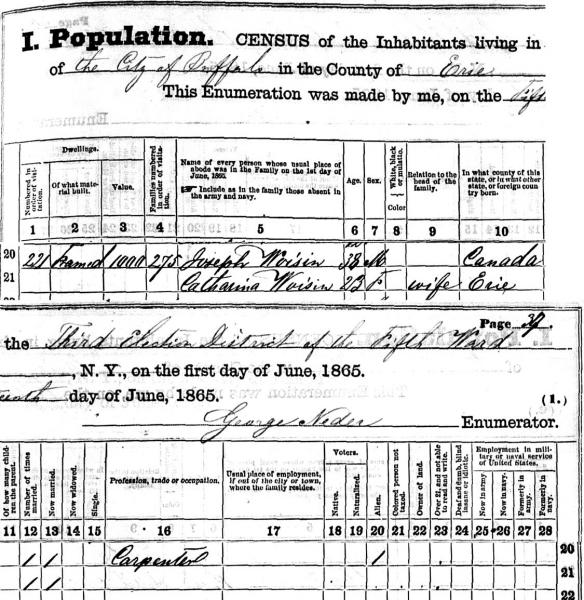 I. Population. CENSUS of the Inhabitants living in
of the City of Buffalo in the County of Erie
This Enumeration was made by me, on the Fift
Numbered in order of visitation.
Dwellings.
Of what material built.
Value.
Families numbered in order of visitation.
Name of every person whose usual place of abode was in the Family on the 1st day of June, 1865.
☞ Include as in the family those absent in the army and navy.
Age.
Sex.
White, black or mulatto.
Color
Relation to the head of the family.
In what county of this state, or in what other state, or foreign country born.
1 2 3 4 5 6 7 8 9 10
20 221 Framed 1000 275 Joseph Woisin 38 M Canada
21 Catharina Woisin 23 F wife Erie
Page 39
the Third Election District of the Fifth Ward
, N. Y., on the first day of June, 1865.
day of June, 1865.
(1.)
George Neder Enumerator.
Of how many children the parent.
Number of times married.
Now married.
Now widowed.
Single.
Profession, trade or occupation.
Usual place of employment, if out of the city or town, where the family resides.
Voters.
Native.
Naturalized.
Alien.
Colored person not taxed.
Owner of land.
Over 21, and not able to read and write.
Deaf and dumb, blind, insane or idiotic.
Employment in military or naval service of United States.
Now in army.
Now in navy.
Formerly in army.
Formerly in navy.
11 12 13 14 15 16 17 18 19 20 21 22 23 24 25 26 27 28
1 1 Carpenter 1 20
1 1 21
22